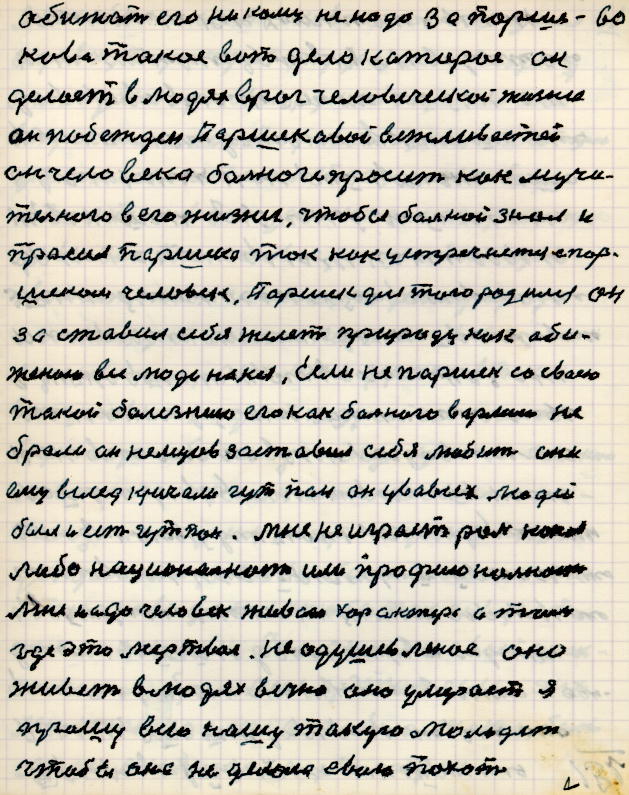 обижат его никому не надо За Парше-
кова такое вот дело каторое он
делает в людях враг человеческой жизни
он побежден Паршекавой вежливастей
он человека болного просит как мучи-
телного в его жизни, чтобы балной знал и
прасил Паршека ток как устречается спар-
шеком человек, Паршек для того родился он
заставил себя жалет природу как аби-
женою все люди накая, Если не паршек со своею
такой болезнию его как балного в армию не
брали он немцов заставил себя любит они
ему вслед кричали гут пан он у вавсех людей
был и ест гут пан. мне не играет рол какая
либо национальност или професионалност
мне надо человек живова характера а там
где это мертвае. неодушевленое оно
живет в людях вечно оно умирает я
прошу всю нашу такую Молодеж
чтобы она не делала свою похот